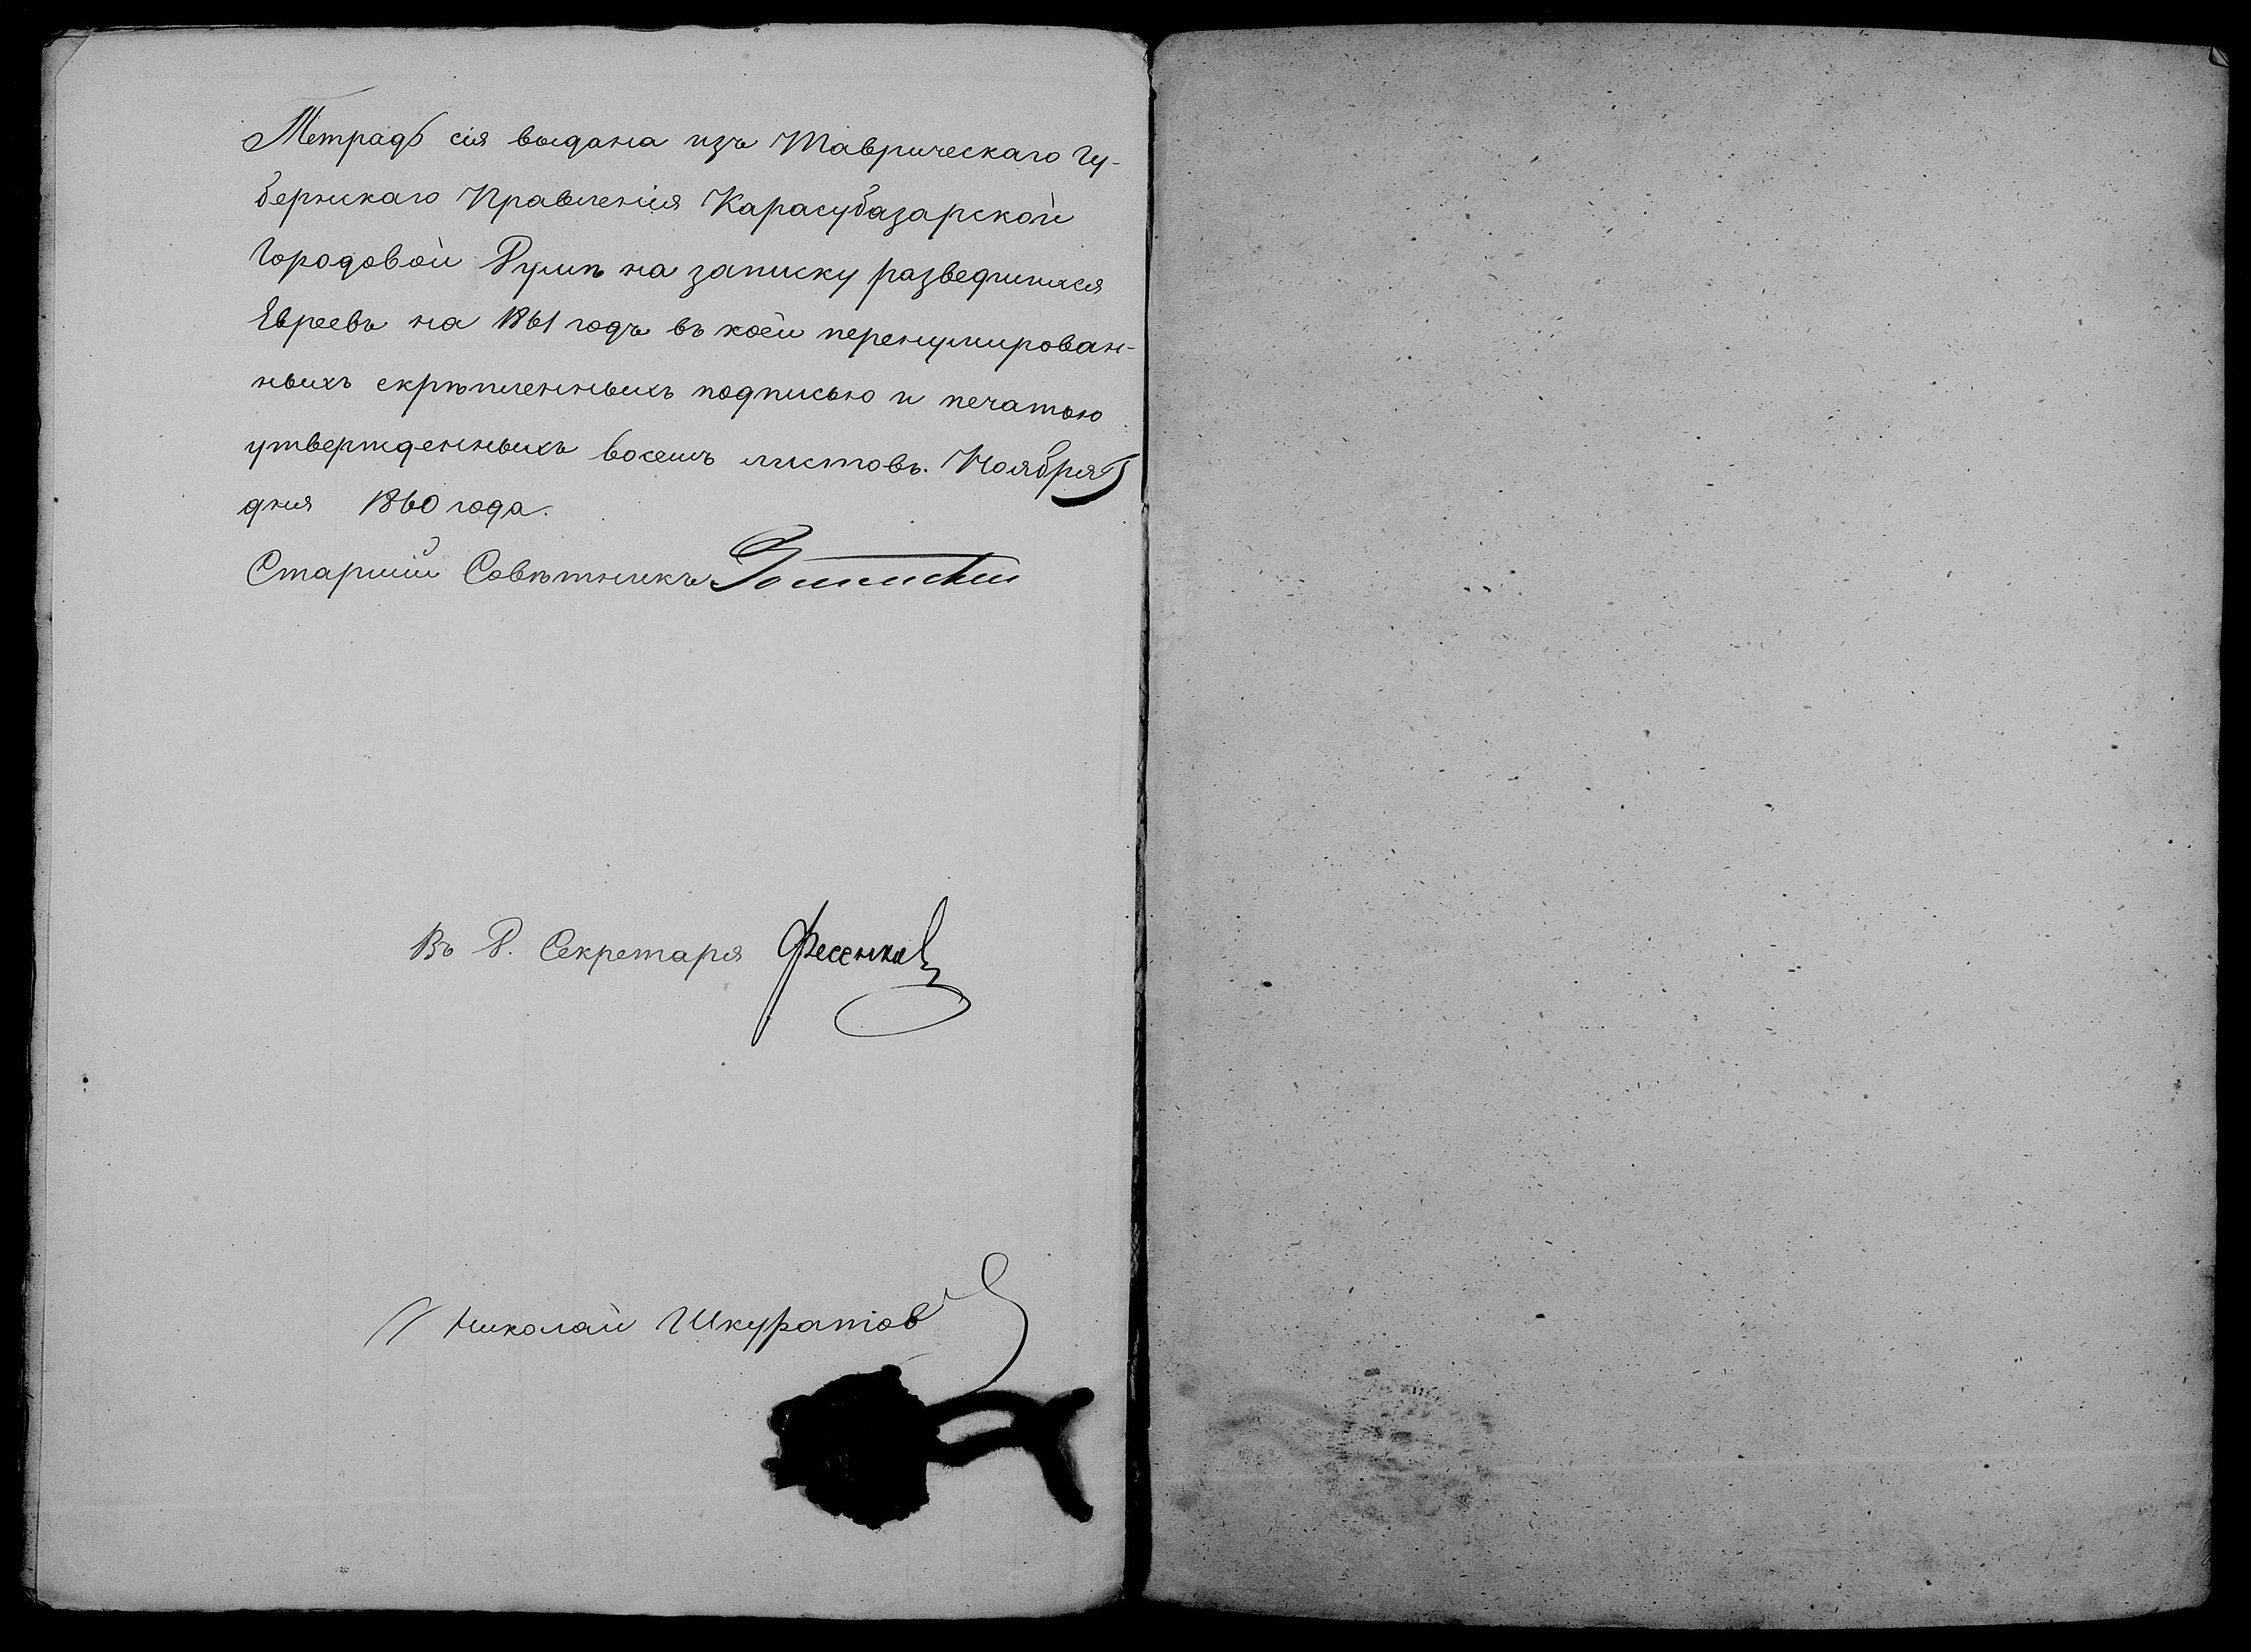 Тетрадь сія выдана изъ Таврическаго Гу-
бернскаго Правленія Карасубазарской
Городовой Думѣ на записку разведшихся
Евреевъ на 1861 годъ въ коей перенумирован-
ныхъ скрѣпленныхъ подписью и печатью
утвержденныхъ восемь листовъ. Ноября
дня 1860 года.
Старшій Совѣтникъ
Въ Д. Секретаря Фесенко
Николай Шкуратов